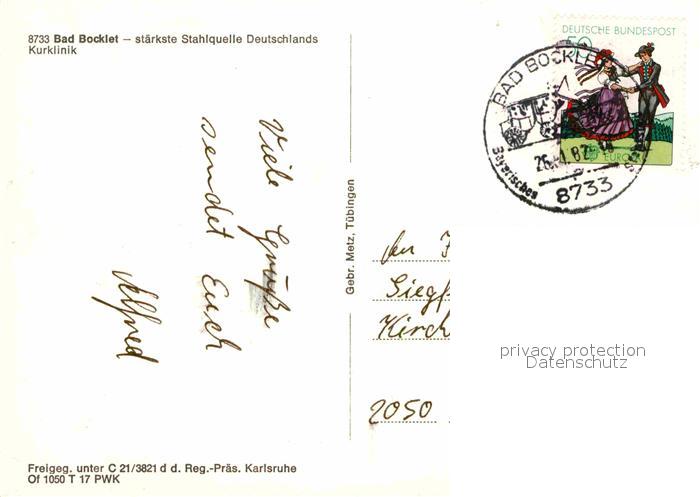 8733 Bad Bocklet – stärkste Stahlquelle Deutschlands
Kurklinik
DEUTSCHE BUNDESPOST
50
BAD BOCKLE
26. .82
Bayerisches
8733
EUROPA
Viele Grüße
sendet Euch
Alfred
Gebr. Metz, Tübingen
Siegf
Kirch
2050
privacy protection
Datenschutz
Freigeg. unter C 21/3821 d d. Reg.-Präs. Karlsruhe
Of 1050 T 17 PWK